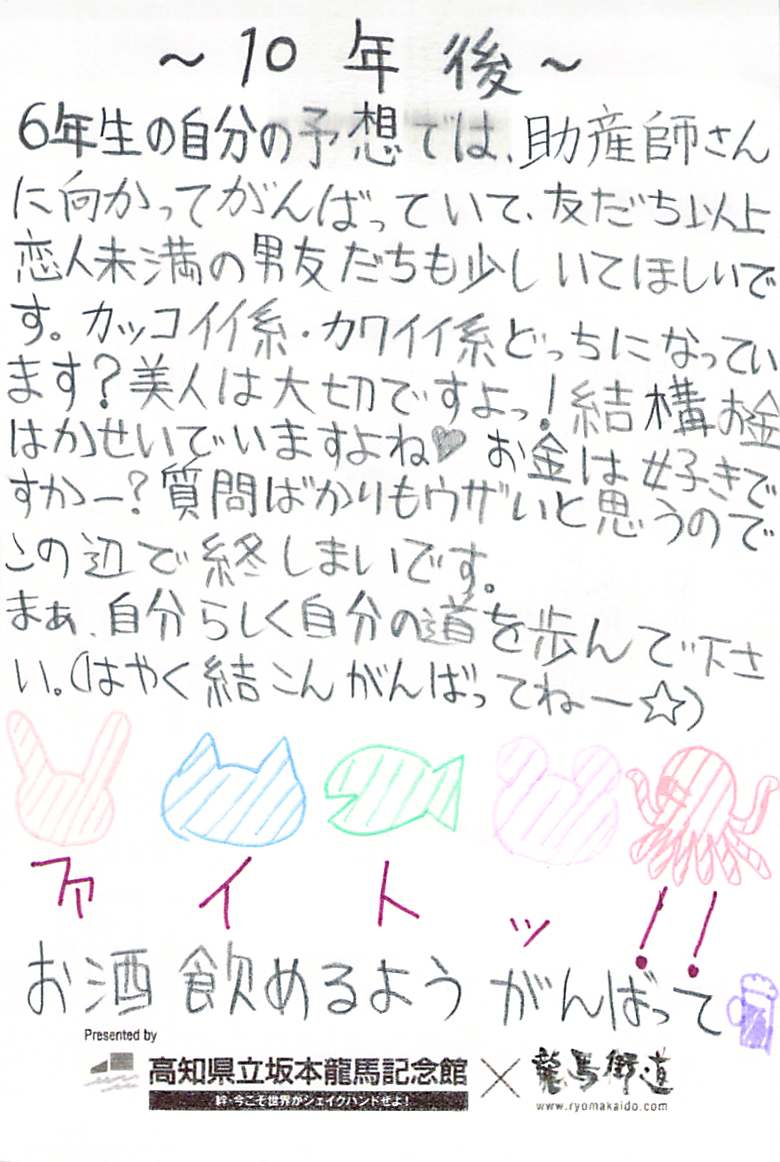 ～10年後～
6年生の自分の予想では、助産師さん
に向かってがんばっていて、友だち以上
恋人未満の男友だちも少しいてほしいで
す。カッコイイ系・カワイイ系どっちになってい
ます？美人は大切ですよっ！結構お金
はかせいでいますよね♥お金は好きで
すかー？質問ばかりもウザいと思うので
この辺で終しまいです。
まぁ、自分らしく自分の道を歩んで下さ
い。(はやく結こんがんばってねー☆)
ファイトッ!!
お酒飲めるようがんばって
Presented by
高知県立坂本龍馬記念館×龍馬街道
絆・今こそ世界がシェイクハンドせよ！
www.ryomakaido.com